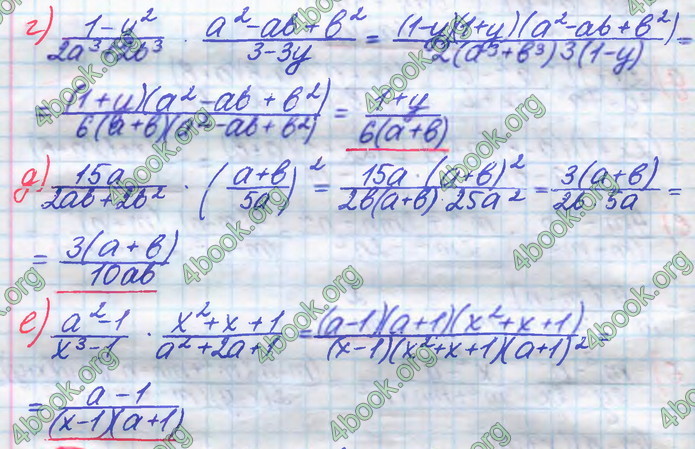 г) (1-y²)/(2a³+2b³) · (a²-ab+b²)/(3-3y) = ((1-y)(1+y)(a²-ab+b²))/(2(a³+b³)3(1-y)) =
= ((1+y)(a²-ab+b²))/(6(a+b)(a²-ab+b²)) = (1+y)/(6(a+b))
д) 15a/(2ab+2b²) · ((a+b)/5a)² = (15a·(a+b)²)/(2b(a+b)·25a²) = (3(a+b))/(2b·5a) =
= (3(a+b))/(10ab)
е) (a²-1)/(x³-1) · (x²+x+1)/(a²+2a+1) = ((a-1)(a+1)(x²+x+1))/((x-1)(x²+x+1)(a+1)²) =
= (a-1)/((x-1)(a+1))
4book.org